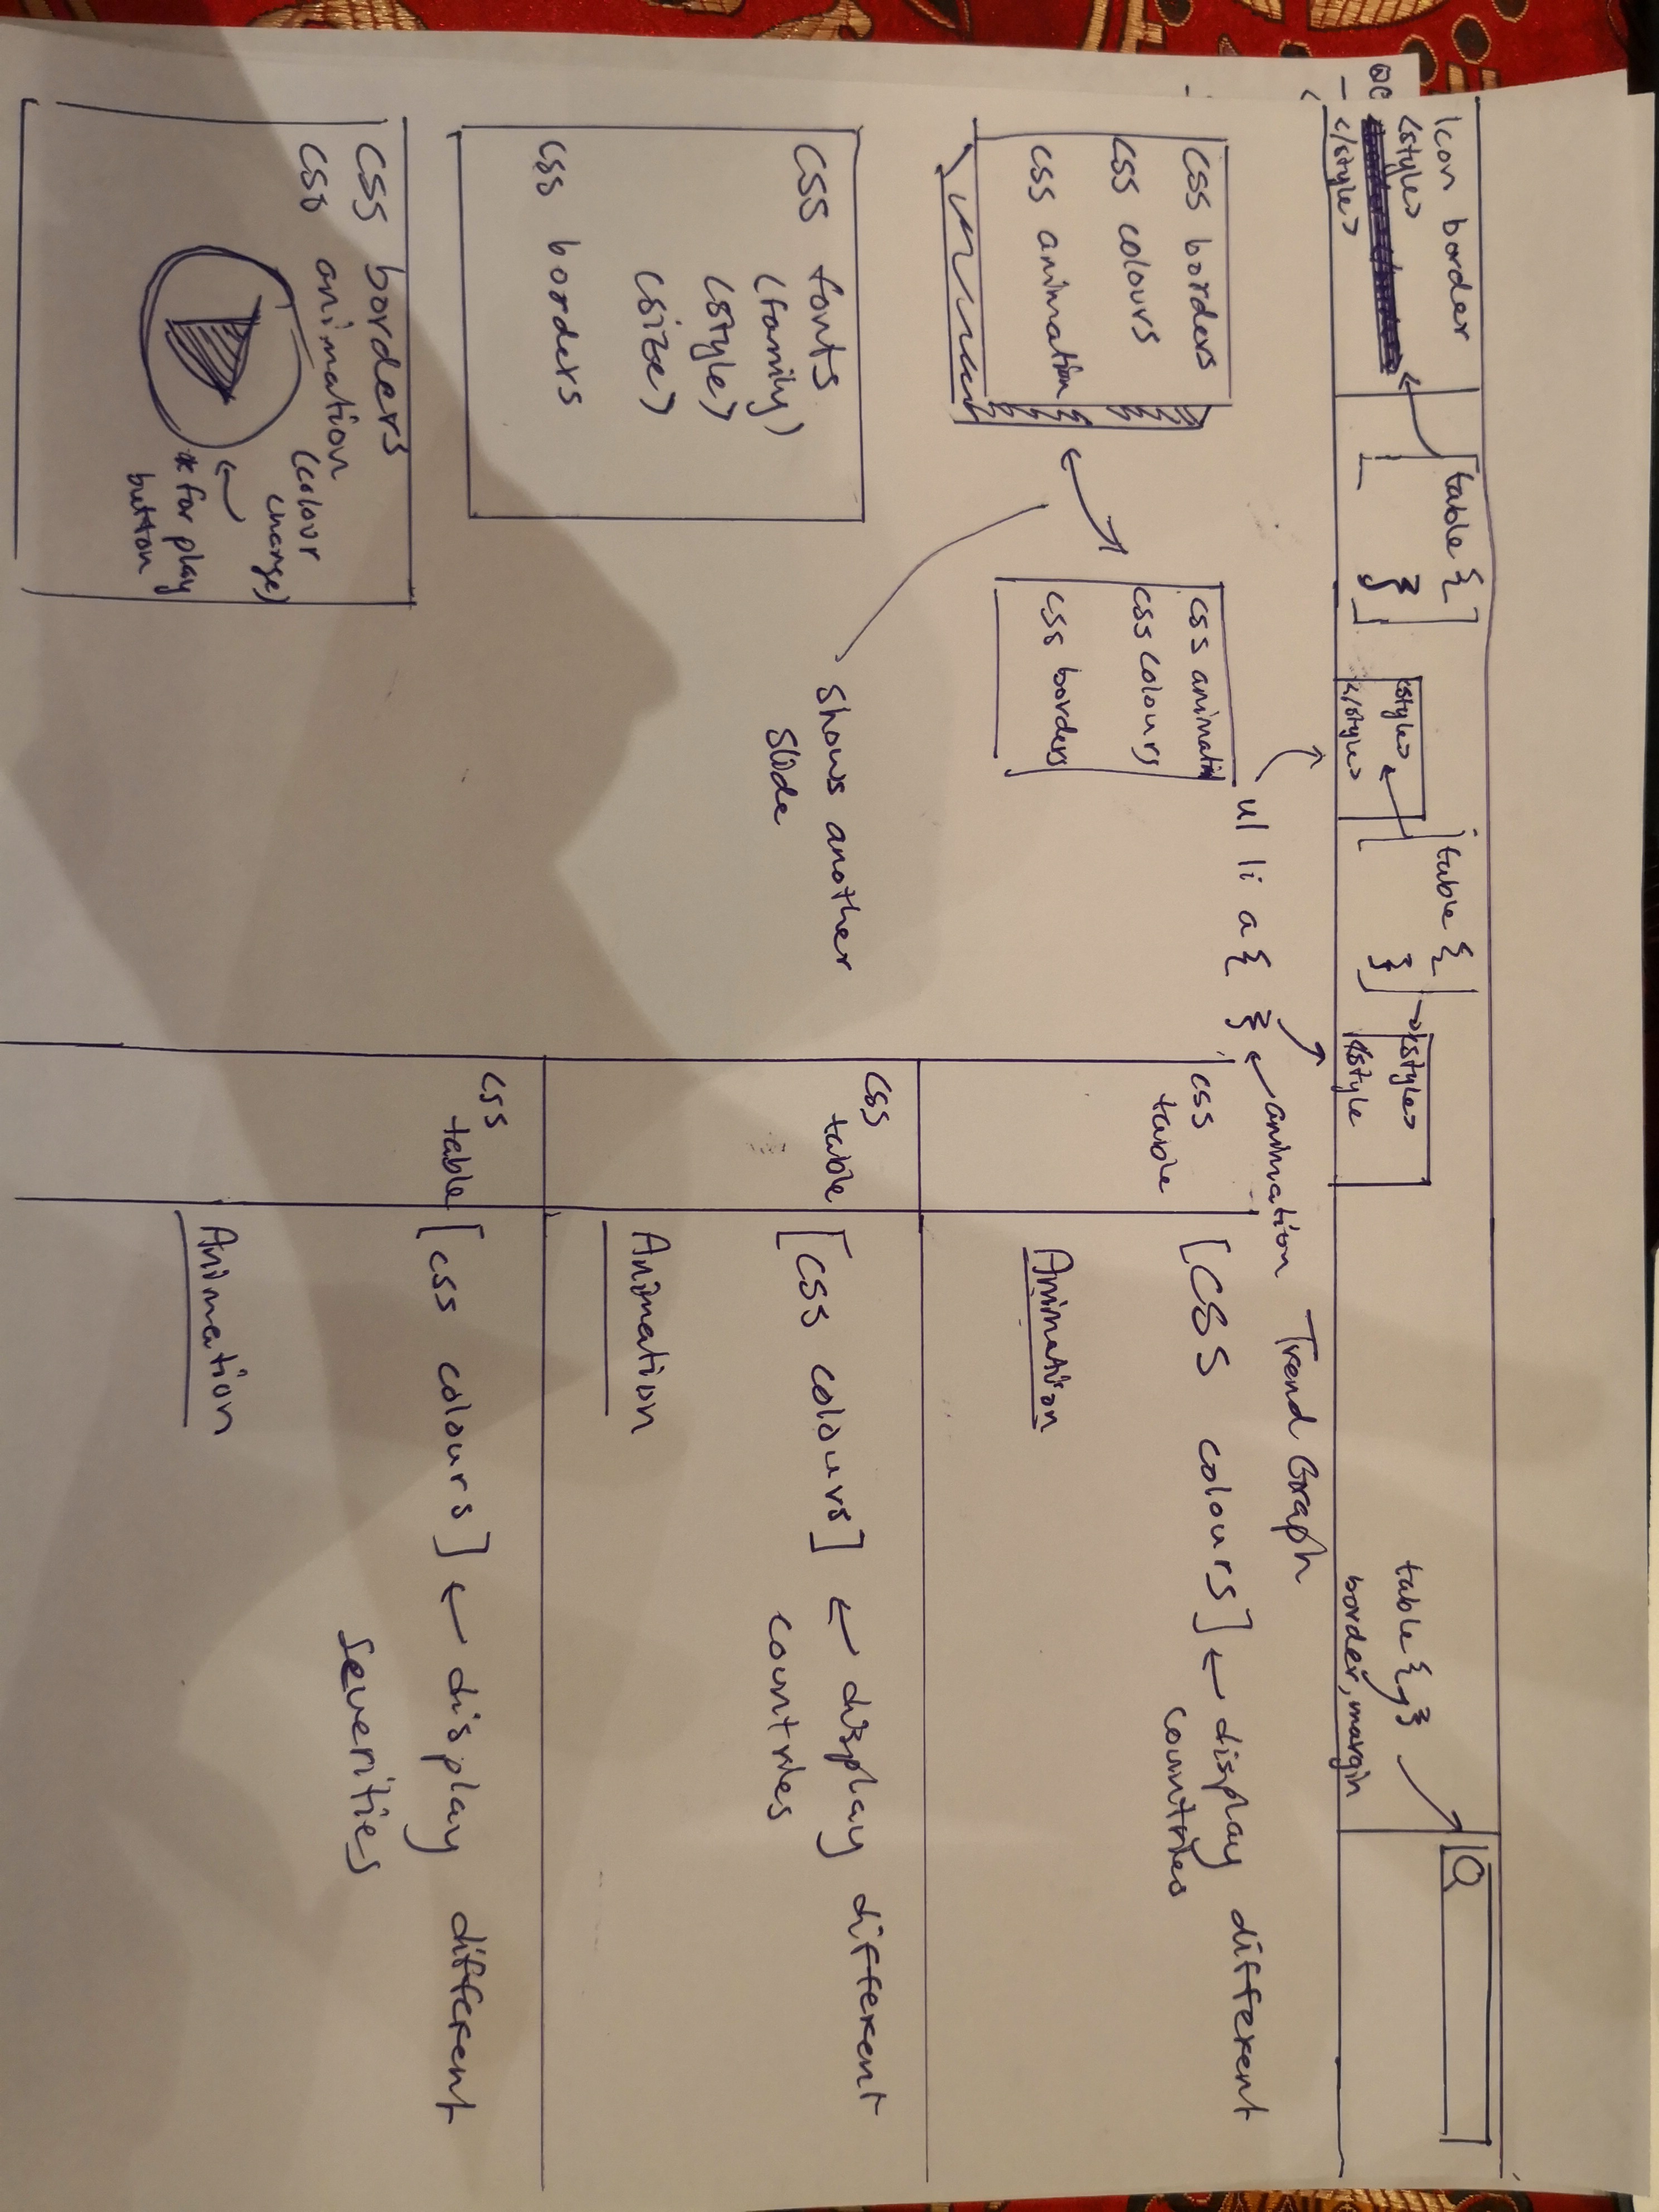 Icon border
<style>
</style>
table {
}
<style>
</style>
table {
}
<style>
<style
table { }
border, margin
ul li a { }
animation
Trend Graph
css borders
css colours
css animation
css animation
css colours
css borders
shows another
slide
css fonts
(family)
(style)
(size)
css borders
css borders
css animation
(colour
change)
* for play
button
css
table
[CSS colours] ← display different
countries
Animation
css
table
[CSS colours] ← display different
countries
Animation
css
table
[css colours] ← display different
severities
Animation